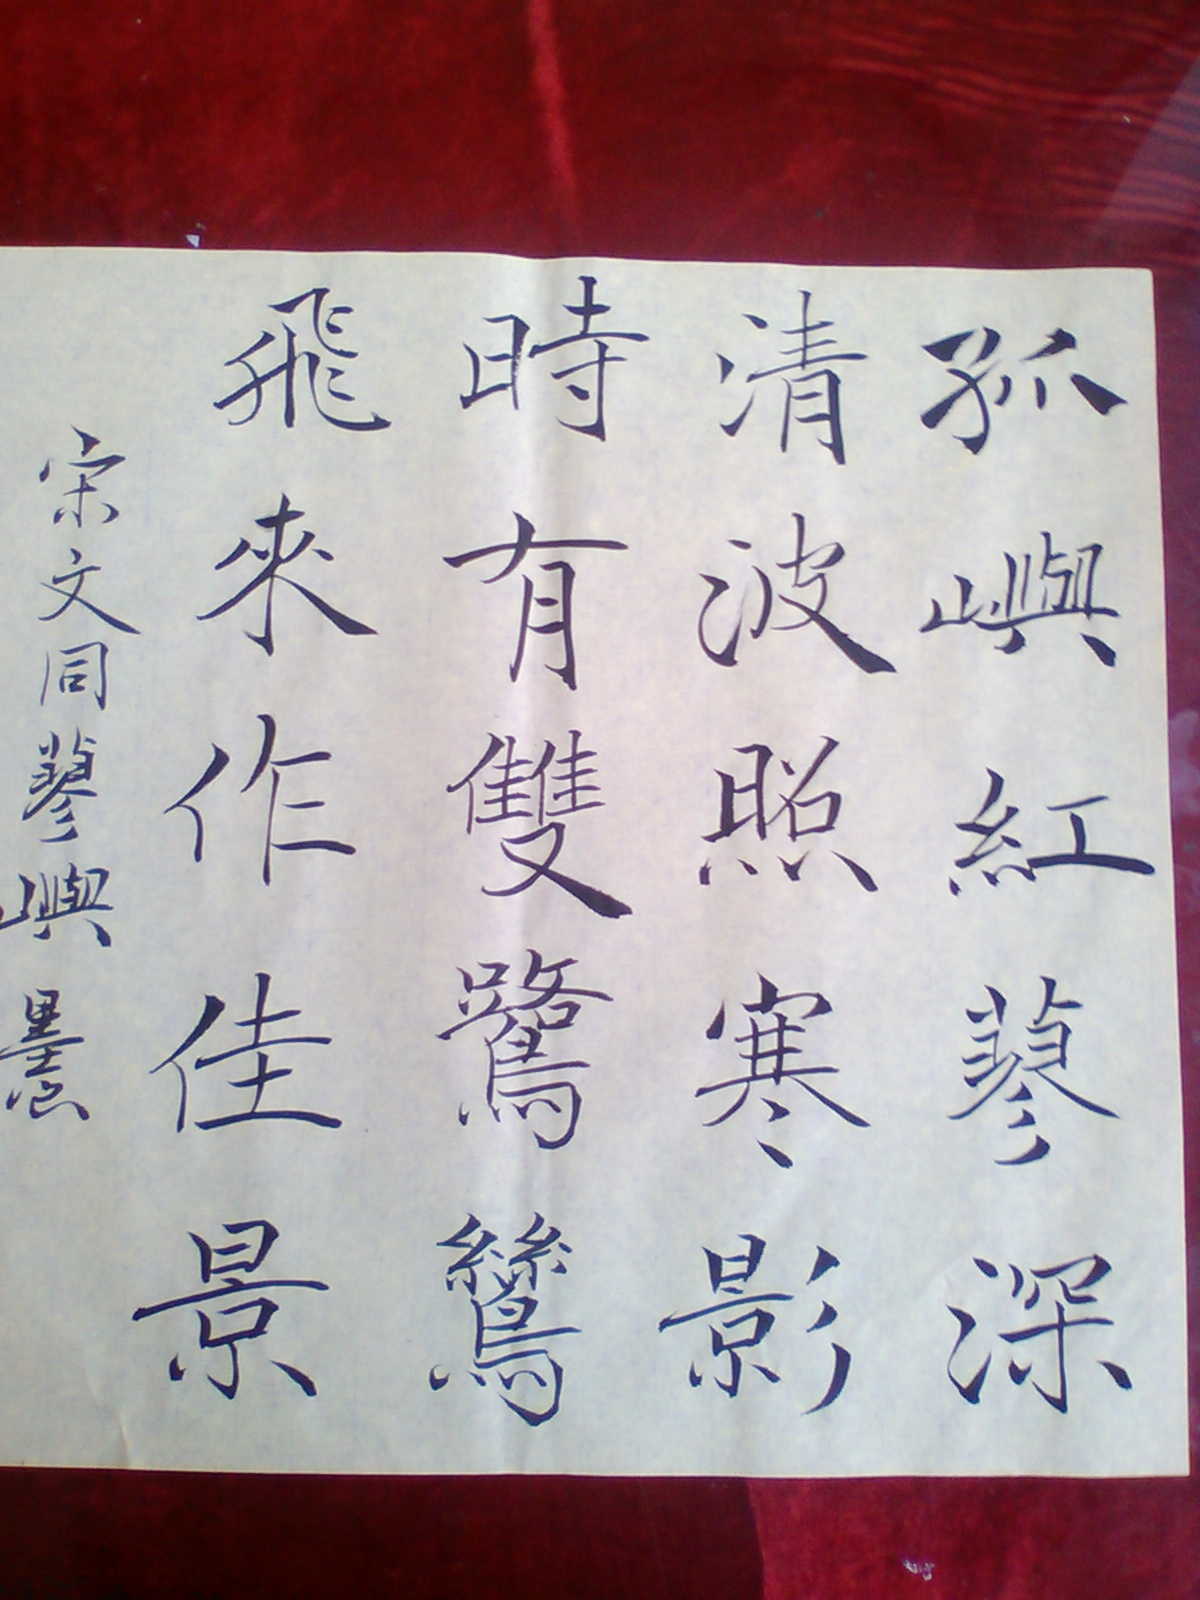 孤嶼紅蓼深
清波照寒影
時有雙鷺鷥
飛來作佳景
宋文同蓼嶼